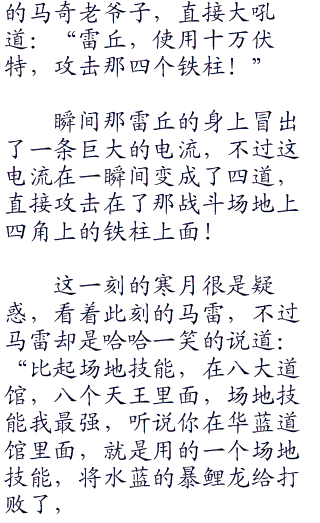 的马奇老爷子，直接大吼
道：“雷丘，使用十万伏
特，攻击那四个铁柱！”
瞬间那雷丘的身上冒出
了一条巨大的电流，不过这
电流在一瞬间变成了四道，
直接攻击在了那战斗场地上
四角上的铁柱上面！
这一刻的寒月很是疑
惑，看着此刻的马雷，不过
马雷却是哈哈一笑的说道：
“比起场地技能，在八大道
馆，八个天王里面，场地技
能我最强，听说你在华蓝道
馆里面，就是用的一个场地
技能，将水蓝的暴鲤龙给打
败了，